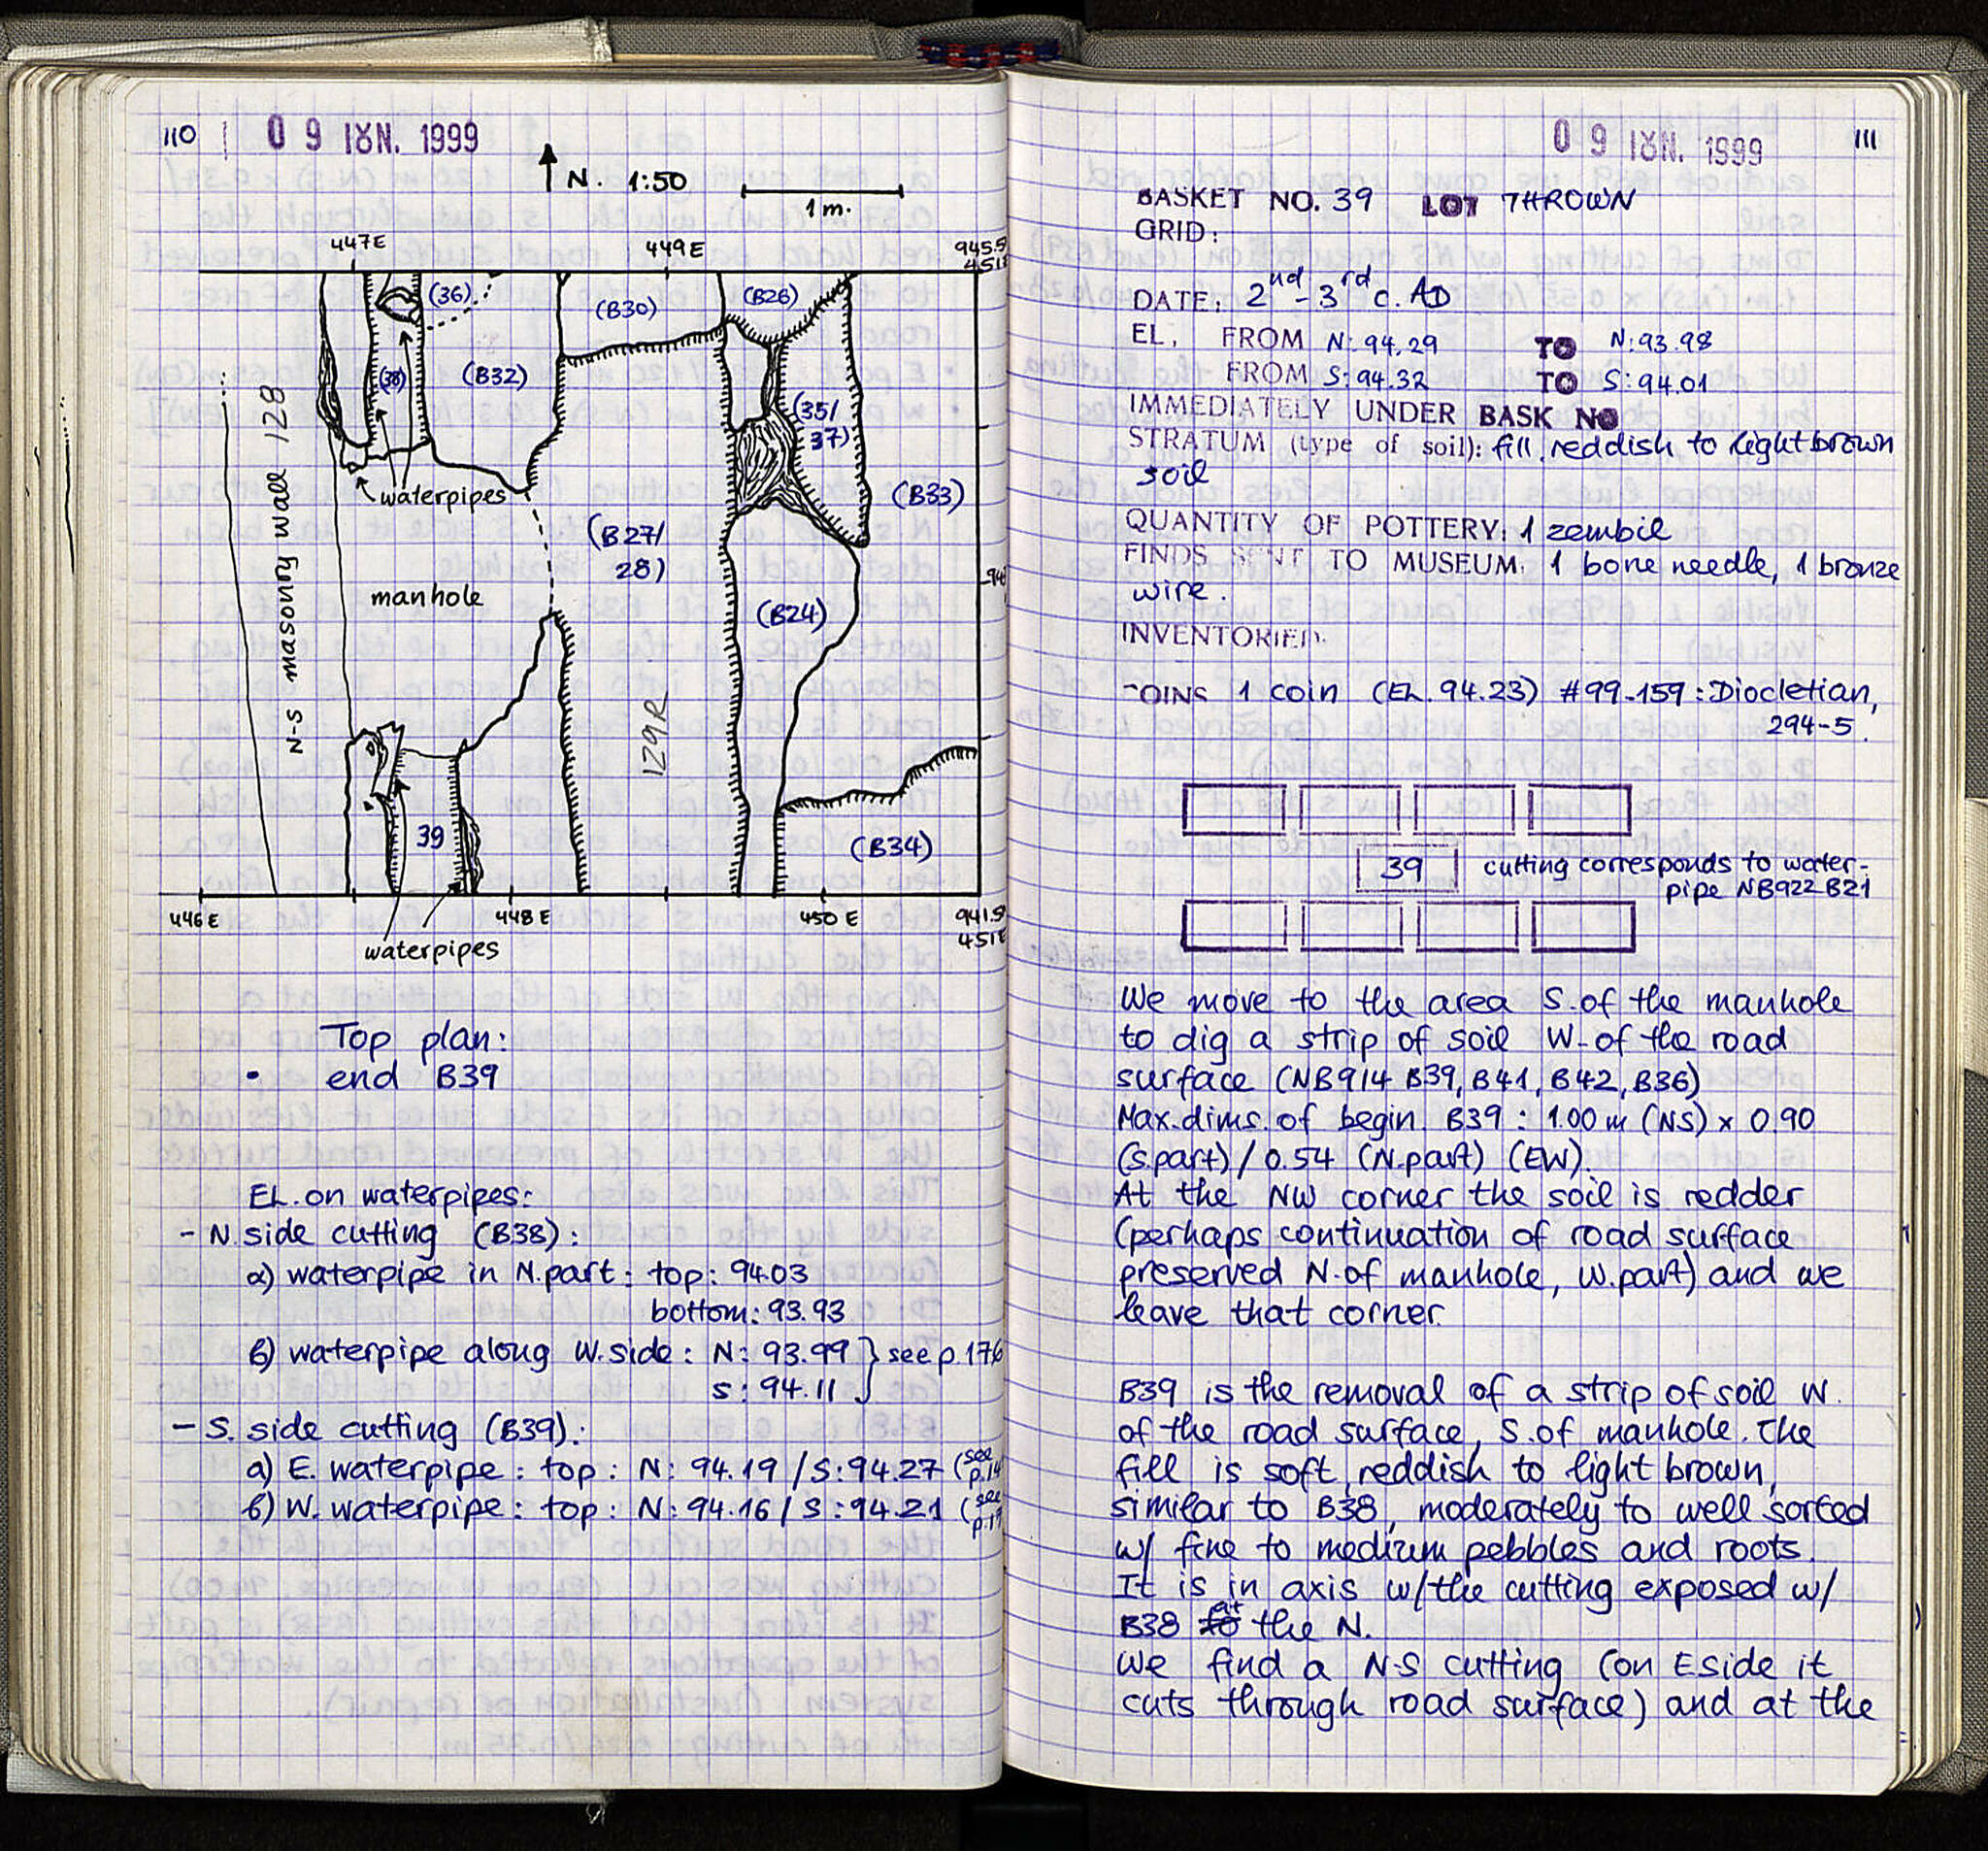 110
0 9 ΙΟΥΝ. 1999
N. 1:50
1 m.
447E
449E
945.5
451E
(36)
(B30)
(B26)
(38)
(B32)
(35/
37)
waterpipes
(B33)
(B27/
28)
N-S masonry wall 128
manhole
(B24)
129R
39
(B34)
446E
448E
450E
941.5
451E
waterpipes
Top plan:
• end B39
EL. on waterpipes:
- N. side cutting (B38):
α) waterpipe in N. part: top: 94.03
bottom: 93.93
β) waterpipe along W. side: N: 93.99 } see p. 176
S: 94.11
- S. side cutting (B39):
a) E. waterpipe: top: N: 94.19 / S: 94.27 (see
β) W. waterpipe: top: N: 94.16 / S: 94.21 (see
0 9 ΙΟΥΝ. 1999
111
BASKET NO. 39 LOT THROWN
GRID:
DATE: 2nd - 3rd c. AD
EL. FROM N: 94.29 TO N: 93.98
FROM S: 94.32 TO S: 94.01
IMMEDIATELY UNDER BASK NO
STRATUM (type of soil): fill, reddish to light brown
soil
QUANTITY OF POTTERY: 1 zembil
FINDS SENT TO MUSEUM: 1 bone needle, 1 bronze
wire.
INVENTORIED:
COINS 1 coin (EL. 94.23) #99-159: Diocletian,
294-5.
39 cutting corresponds to water-
pipe NB922 B21
We move to the area S. of the manhole
to dig a strip of soil W. of the road
surface (NB914 B39, B41, B42, B36)
Max. dims. of begin. B39: 1.00 m (NS) x 0.90
(S. part) / 0.54 (N. part) (EW).
At the NW corner the soil is redder
(perhaps continuation of road surface
preserved N. of manhole, W. part) and we
leave that corner.
B39 is the removal of a strip of soil W.
of the road surface, S. of manhole. The
fill is soft, reddish to light brown,
similar to B38, moderately to well sorted
w/ fine to medium pebbles and roots.
It is in axis w/the cutting exposed w/
B38 at the N.
We find a N-S cutting (on E side it
cuts through road surface) and at the